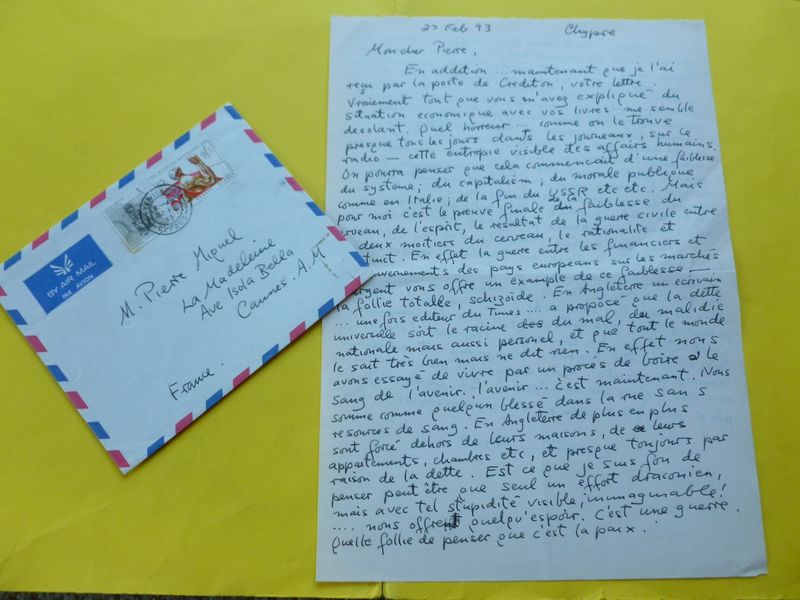 27 Feb 93 Chypre
Mon cher Pierre,
En addition ... maintenant que je l'ai
reçu par la poste de Crediton, votre lettre.
Vraiement tout que vous m'avez expliqué du
situation economique avec vos livres me semble
desolant. Quel horreur ... comme on le trouve
presque tous les jours dans les journeaux, sur le
radio — cette entropie visible des affairs humains.
On pourra penser que cela commencait d'une faiblesse
du systeme; du capitalism; du morale publique
comme en Italie; de la fin du USSR etc etc. Mais
pour moi c'est le preuve finale de la faiblesse du
cerveau, de l'esprit, le resultat de la guerre civile entre
deux moitiers du cerveau, le rationalite et
En effet la guerre entre les financiers et
gouvernements des pays europeans sur les marchés
vous offre un example de ce faiblesse —
la follie totalle, schizoide. En Angleterre un ecrivain
... une fois editeur du Times .... a proposé que la dette
universelle soit le racine du mal, du maladie
nationale mais aussi personel, et que tout le monde
le sait très bien mais ne dit rien. En effet nous
avons essayé de vivre par un proces de boire le
sang de l'avenir. l'avenir ... c'est maintenant. Nous
somme comme quelqun blessé dans la rue sans
resources de sang. En Angleterre de plus en plus
sont forcé dehors de leurs maisons, de leurs
appartements, chambres etc, et presque toujours par
raison de la dette. Est ce que je suis fou de
penser peut être que seul un effort draconien,
mais avec tel stupidité visible, inimaginable!
.... nous offrent quelqu'espoir. C'est une guerre.
Quelle follie de penser que c'est la paix.
BY AIR MAIL
PAR AVION
M. Pierre Miquel
La Madeleine
Ave Isola Bella
Cannes. A.M
France.